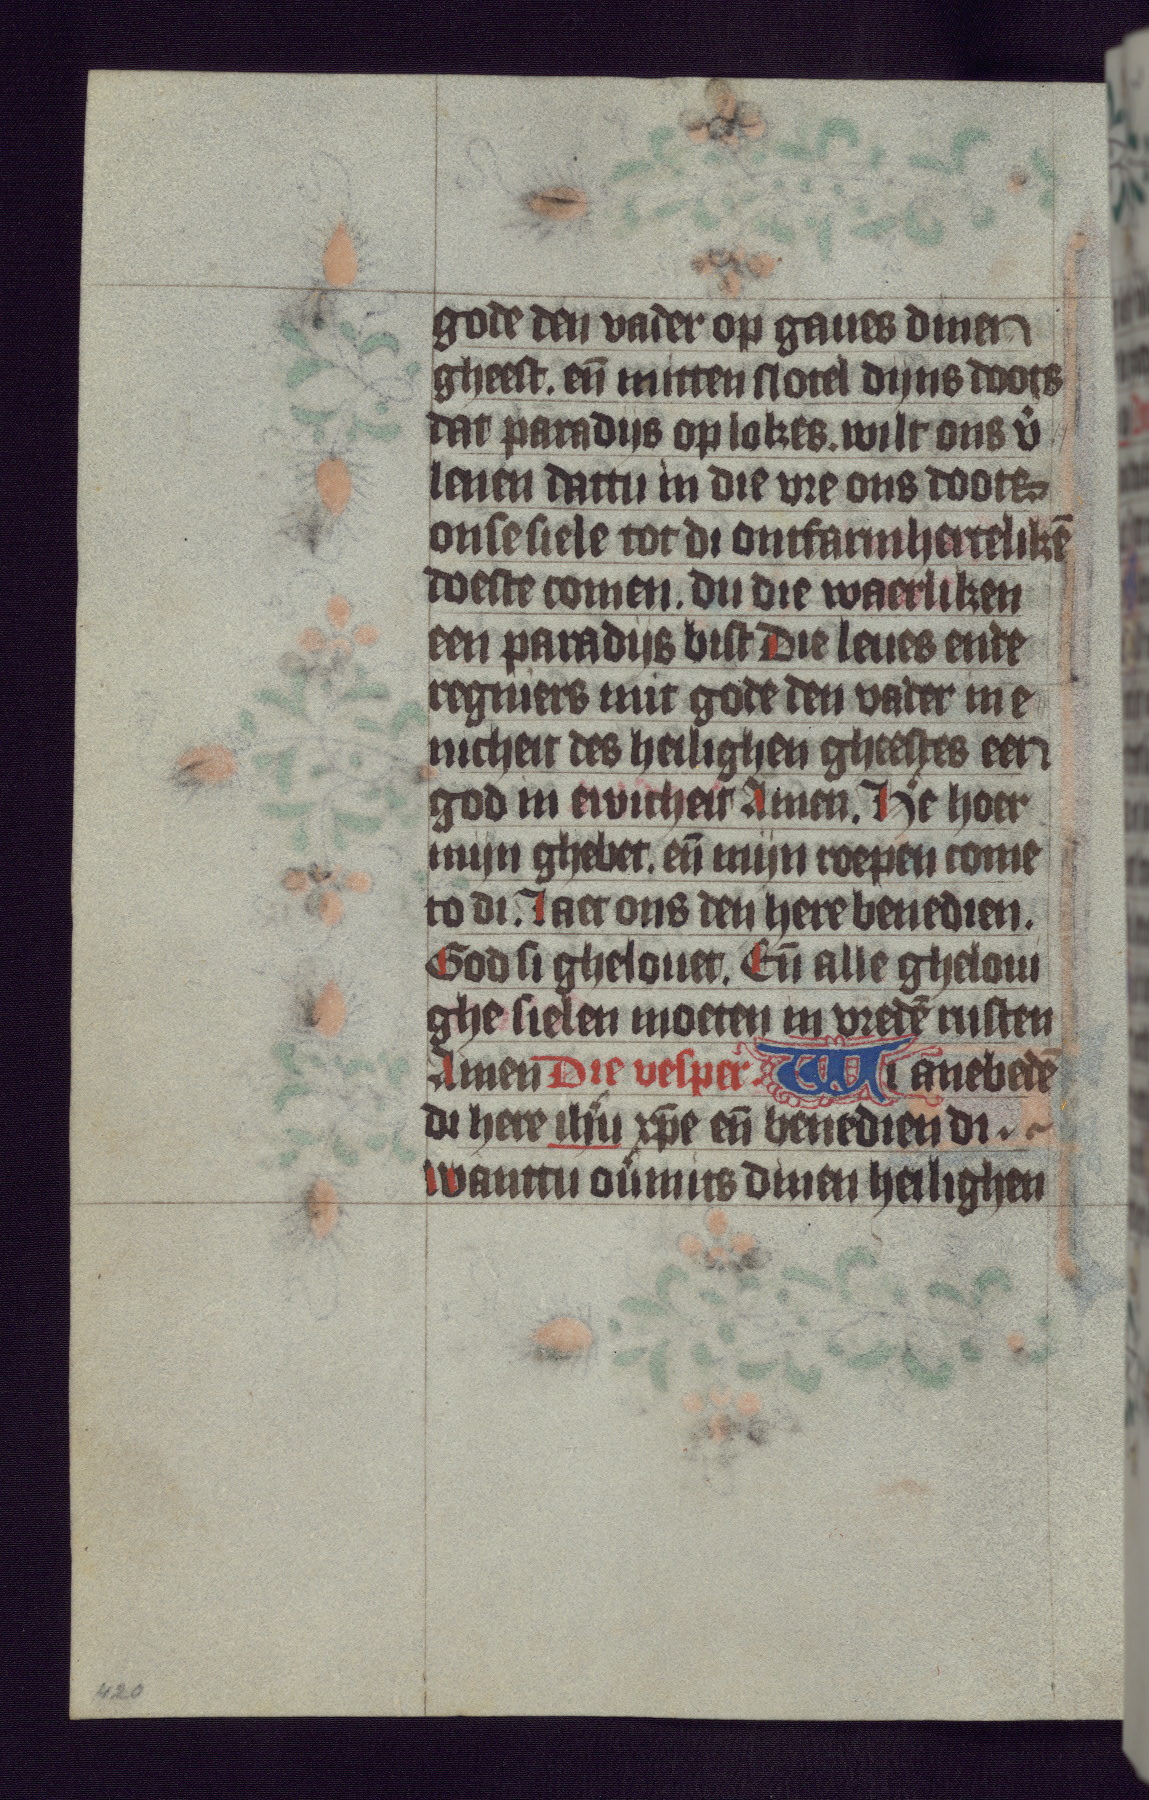 gode den vader op gaues dinen
gheest. en̄ mitten slotel dijns doots
dat paradijs op lokes. wilt ons v̉
lenen dattu in die vre ons doots
onse siele tot di ontfarmhertelikē
doeste comen. du die waerliken
een paradijs bist Die leues ende
regniers mit gode den vader in e
nicheit des heilighen gheestes een
god in ewicheit Amen. H̉e hoer
mijn ghebet. en̄ mijn roepen come
to di. Laet ons den here benedien.
God si ghelouet. En̄ alle gheloui
ghe sielen moeten in vredē rusten
Amen Die vesper Wi anebedē
di here ihū xp̄e en̄ benedien di
wanttu ou̓mits dinen heilighen
420